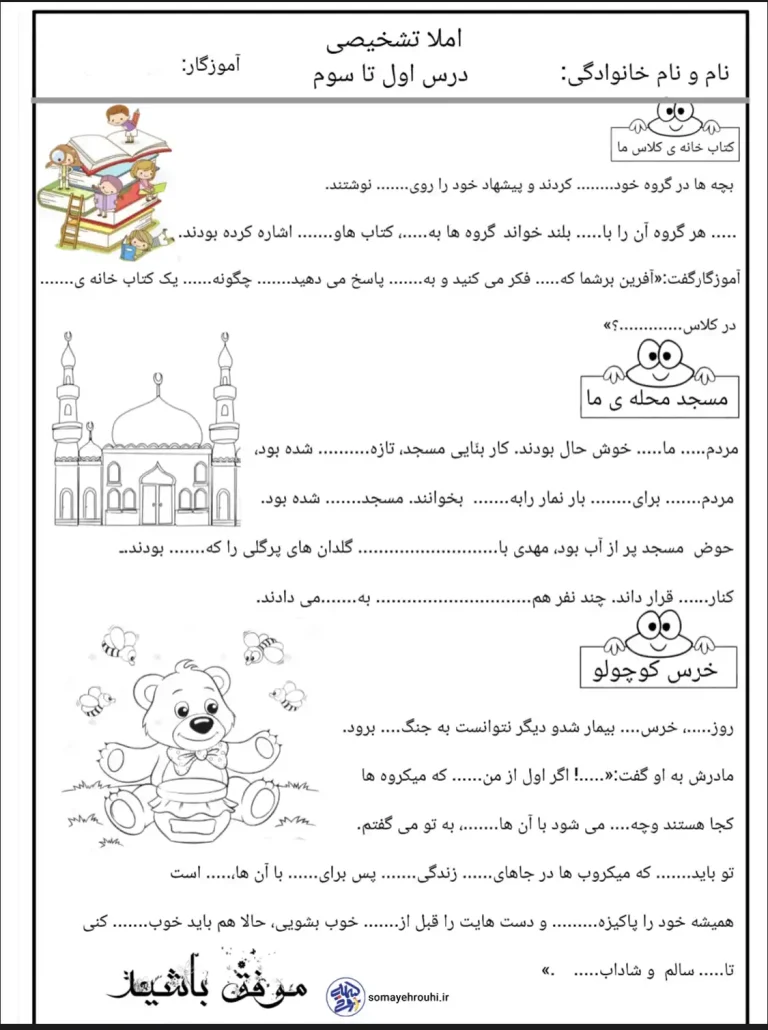 املا تشخیصی
درس اول تا سوم
نام و نام خانوادگی:
آموزگار:
کتاب خانه ی کلاس ما
بچه ها در گروه خود........ کردند و پیشهاد خود را روی....... نوشتند.
..... هر گروه آن را با..... بلند خواند گروه ها به.....، کتاب هاو....... اشاره کرده بودند.
آموزگارگفت:«آفرین برشما که..... فکر می کنید و به....... پاسخ می دهید....... چگونه...... یک کتاب خانه ی.......
در کلاس.............؟»
مسجد محله ی ما
مردم..... ما..... خوش حال بودند. کار بنّایی مسجد، تازه.......... شده بود،
مردم....... برای........ بار نمار رابه....... بخوانند. مسجد....... شده بود.
حوض مسجد پر از آب بود، مهدی با........................... گلدان های پرگلی را که....... بودند..
کنار...... قرار داند. چند نفر هم.............................. به.......می دادند.
خرس کوچولو
روز.....، خرس.... بیمار شدو دیگر نتوانست به جنگ.... برود.
مادرش به او گفت:«.....! اگر اول از من...... که میکروه ها
کجا هستند وچه.... می شود با آن ها.......، به تو می گفتم.
تو باید....... که میکروب ها در جاهای...... زندگی....... پس برای...... با آن ها،..... است
همیشه خود را پاکیزه......... و دست هایت را قبل از....... خوب بشویی، حالا هم باید خوب....... کنی
تا..... سالم و شاداب..... .»
موفق باشید
somayehrouhi.ir